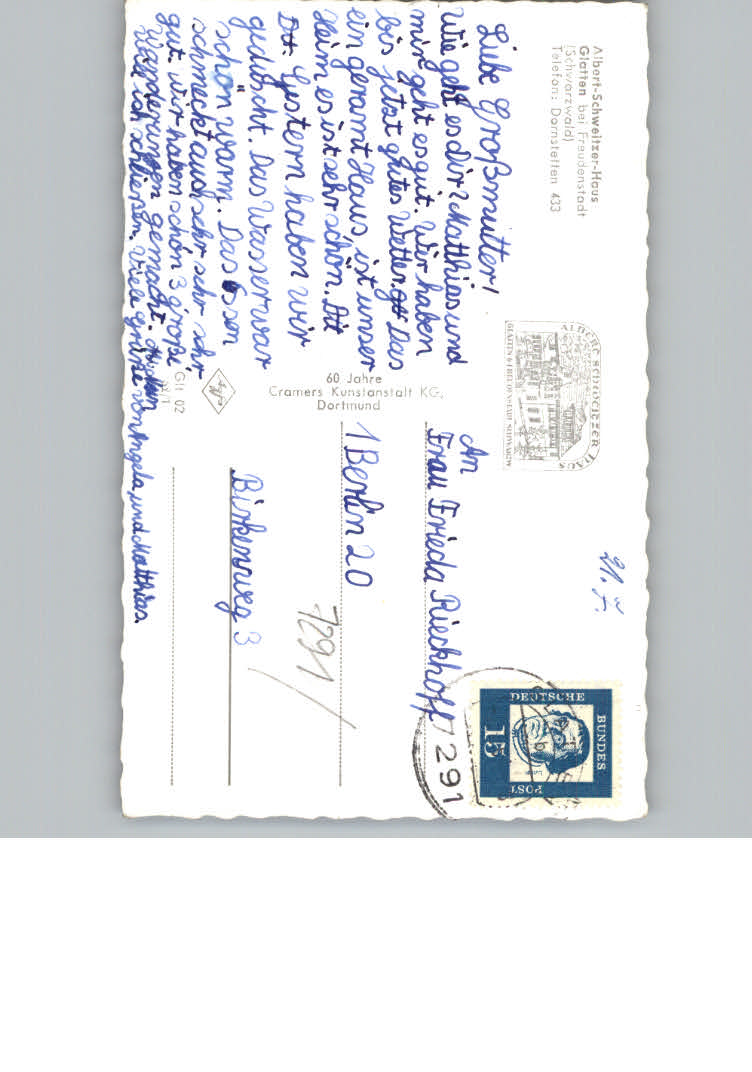 Albert-Schweitzer-Haus
Glatten bei Freudenstadt
(Schwarzwald)
Telefon: Dornstetten 433
Liebe Großmutter!
Wie geht es dir? Matthias und
mir geht es gut. Wir haben
bis jetzt gutes Wetter. Das
ein geramt Haus, ist unser
Heim es ist sehr schön.
Gestern haben wir
geduscht. Das Wasser war
schön warm. Das Essen
schmeckt auch sehr sehr sehr
gut. Wir haben schon 3 große
Wanderungen gemacht. Nun
will ich schließen. Viele Grüße von Angela und Matthias.
60 Jahre
Cramers Kunstanstalt KG,
Dortmund
Agfa
Glt 02
ALBERT SCHWEITZER HAUS
GLATTEN b. FREUDENSTADT-SCHWARZW.
21. 7.
DEUTSCHE
BUNDES
POST
15
Luther
7291
An
Frau Frieda Rieckhoff
1 Berlin 20
Birkenweg 3
7291